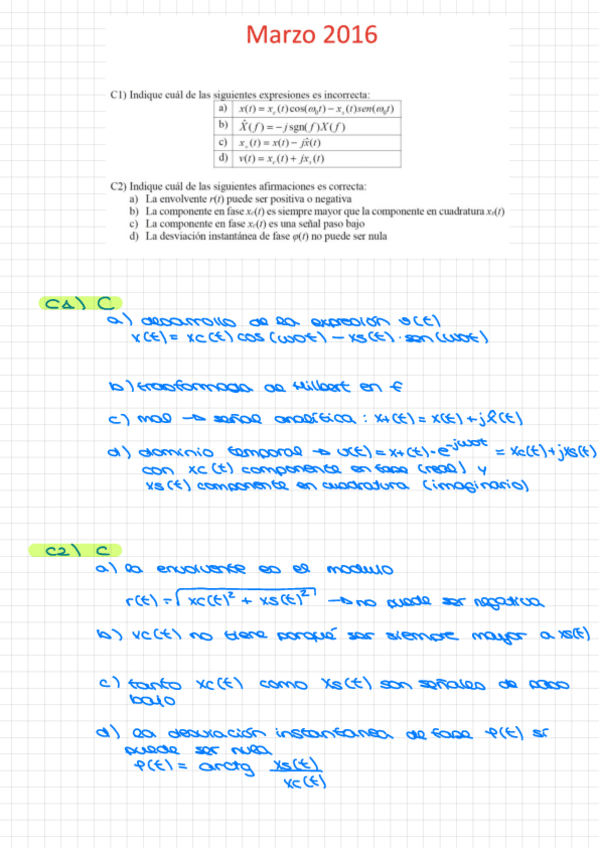 Marzo 2016
C1) Indique cuál de las siguientes expresiones es incorrecta:
a) x(t) = x_c(t)cos(ω₀t) − x_s(t)sen(ω₀t)
b) X̂(f) = −j sgn(f)X(f)
c) x₊(t) = x(t) − jx̂(t)
d) v(t) = x_c(t) + jx_s(t)
C2) Indique cuál de las siguientes afirmaciones es correcta:
a) La envolvente r(t) puede ser positiva o negativa
b) La componente en fase x_c(t) es siempre mayor que la componente en cuadratura x_s(t)
c) La componente en fase x_c(t) es una señal paso bajo
d) La desviación instantánea de fase φ(t) no puede ser nula
C1) C
a) desarrollo de la expresión v(t)
x(t) = xc(t) cos(ω0t) − xs(t) · sen(ω0t)
b) transformada de Hilbert en f
c) mal → señal analítica : x+(t) = x(t) + j x̂(t)
d) dominio temporal → v(t) = x+(t) · e^-jω0t = xc(t) + jxs(t)
con xc(t) componente en fase (real) y
xs(t) componente en cuadratura (imaginario)
C2) C
a) la envolvente es el modulo
r(t) = √xc(t)² + xs(t)² → no puede ser negativa
b) vc(t) no tiene porqué ser siempre mayor a xs(t)
c) tanto xc(t) como xs(t) son señales de paso
bajo
d) la desviación instantanea de fase φ(t) sí
puede ser nula
φ(t) = arctg xs(t)/xc(t)